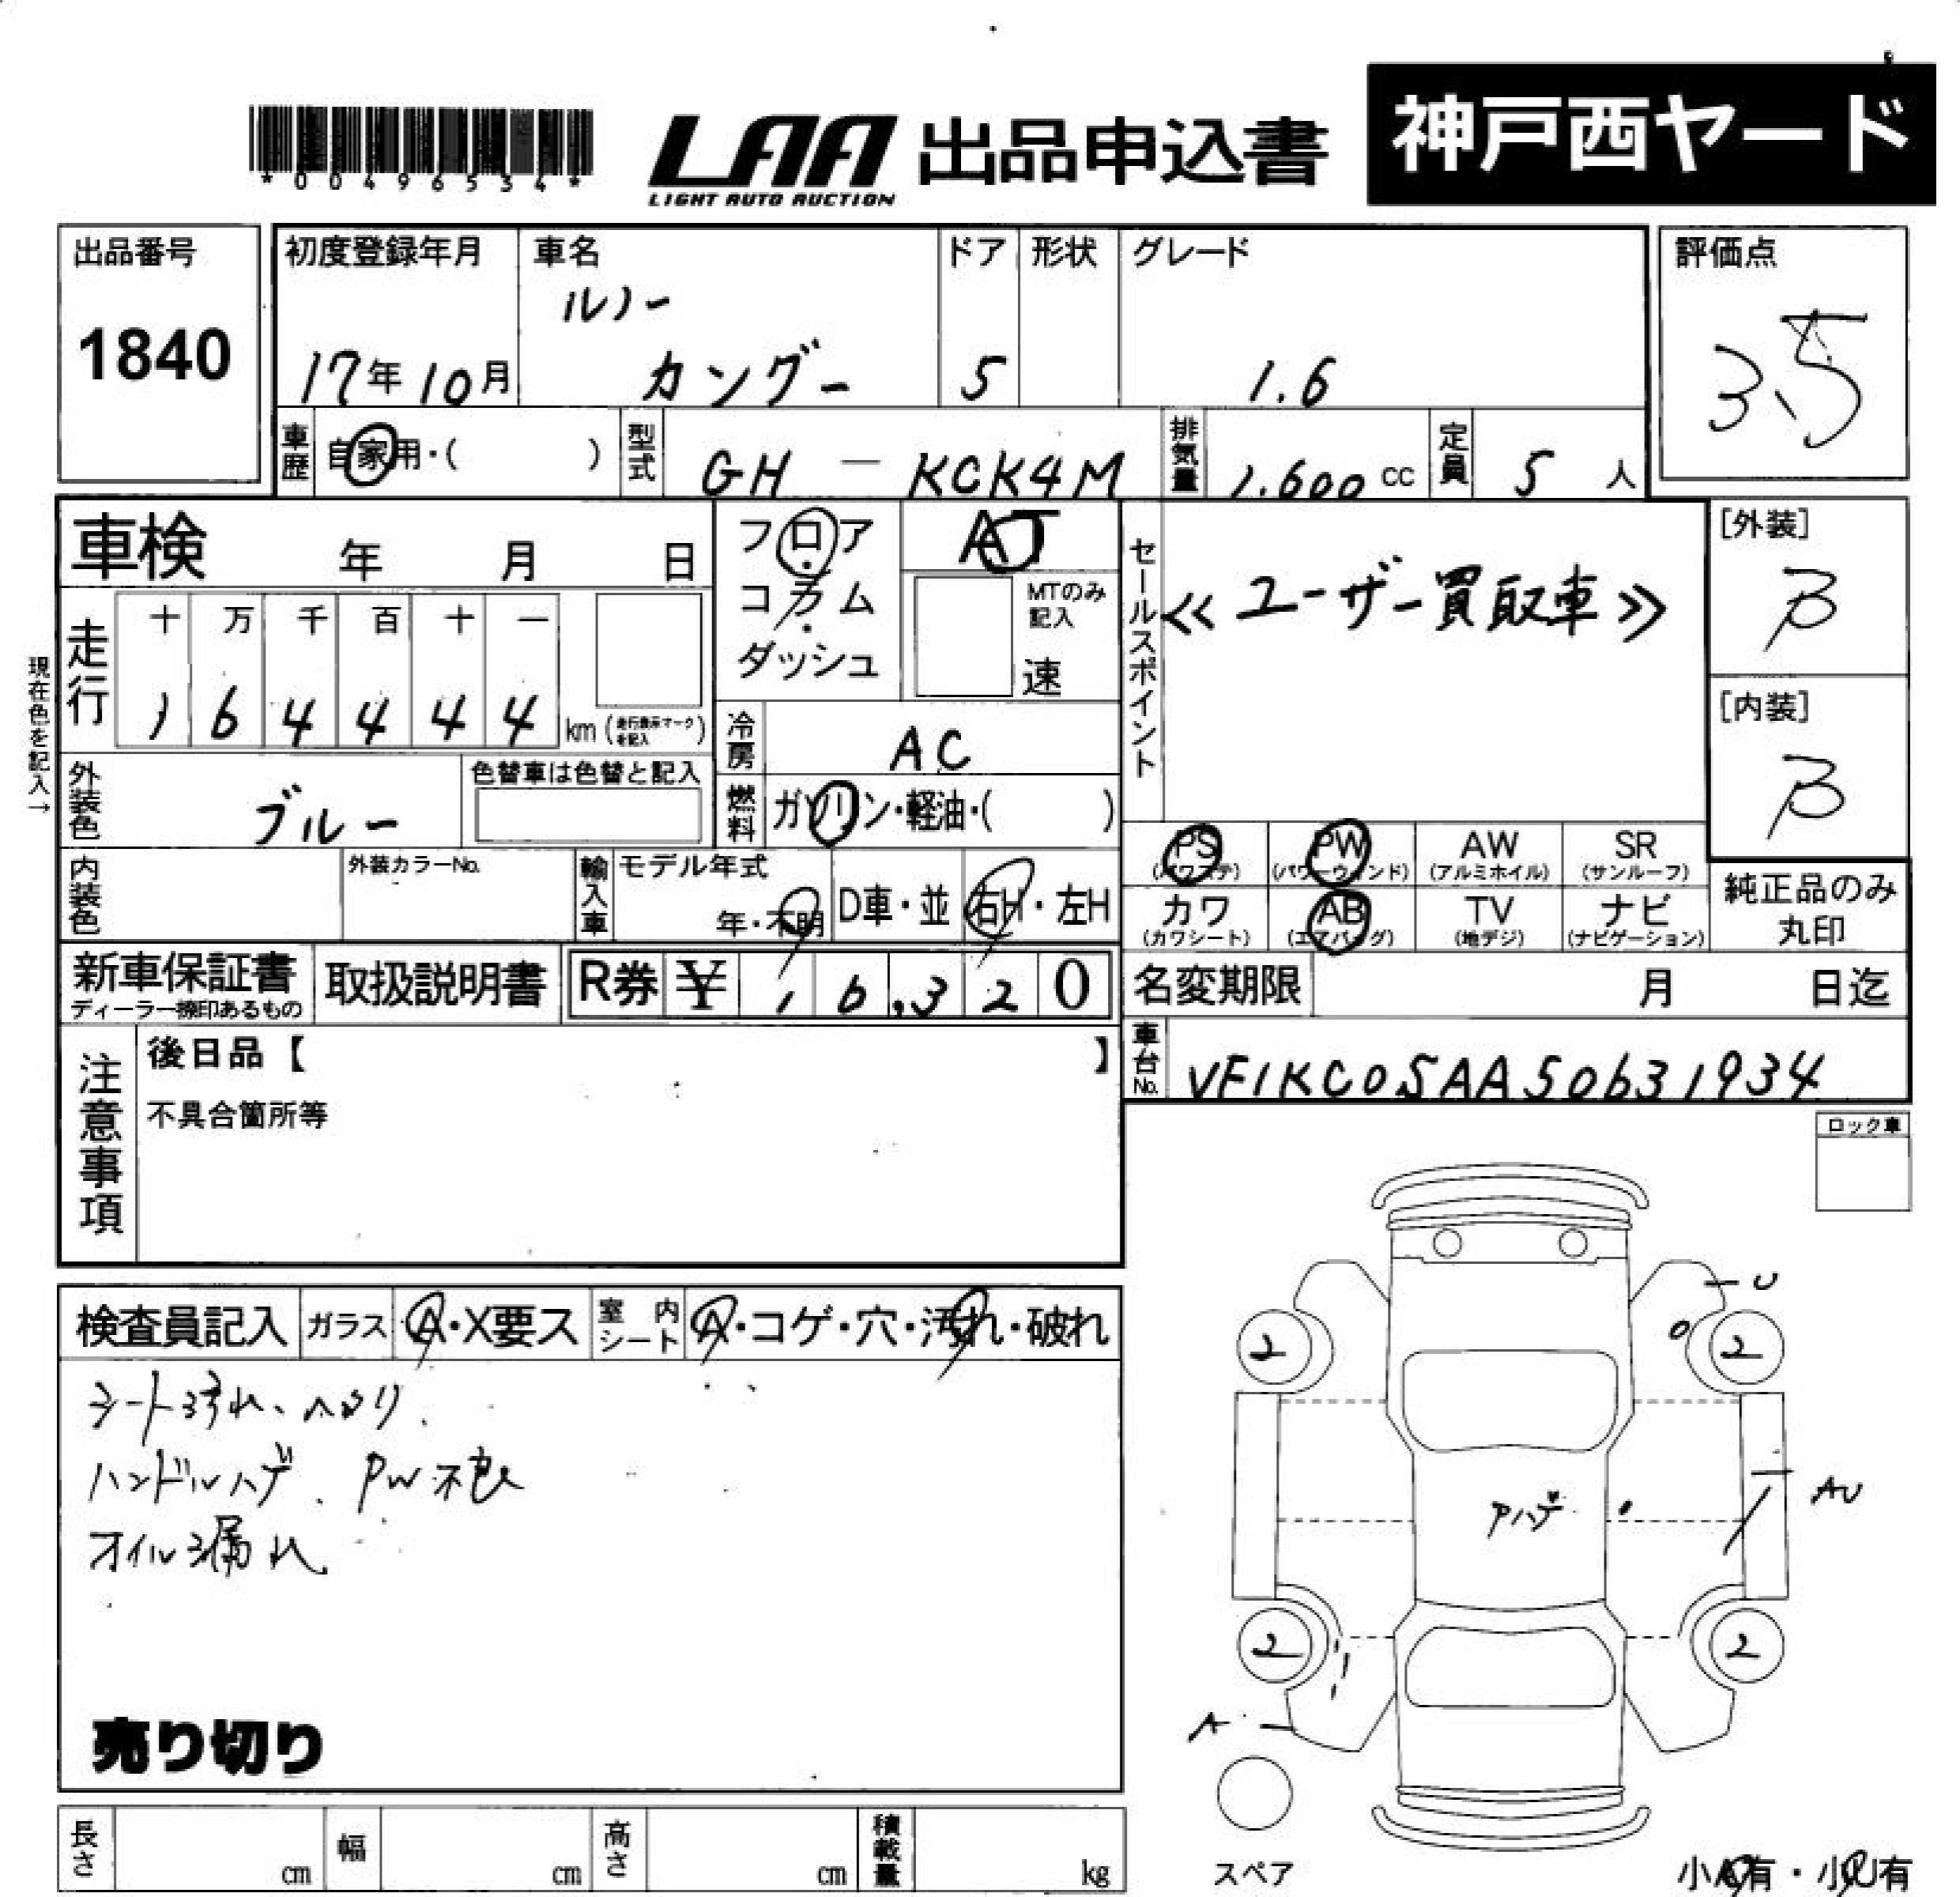 *00496534*
LAA
LIGHT AUTO AUCTION
出品申込書
神戸西ヤード
出品番号
1840
初度登録年月
17年10月
車名
ルノー
カングー
ドア
5
形状
グレード
1.6
評価点
3.5
車歴
自家用・( )
型式
GH - KCK4M
排気量
1.600 cc
定員
5 人
車検 年 月 日
フロア
・
コラム
・
ダッシュ
AT
MTのみ
記入
速
セールスポイント
≪ユーザー買取車≫
[外装]
B
[内装]
B
現在色を記入→
走行
十 万 千 百 十 一
1 6 4 4 4 4
km (走行表示マークを記入)
冷房
AC
外装色
ブルー
色替車は色替と記入
燃料
ガソリン・軽油・( )
PS
(パワステ)
PW
(パワーウィンド)
AW
(アルミホイル)
SR
(サンルーフ)
内装色
外装カラーNo.
輸入車
モデル年式
年・不明
D車・並
右H・左H
カワ
(カワシート)
AB
(エアバッグ)
TV
(地デジ)
ナビ
(ナビゲーション)
純正品のみ
丸印
新車保証書
ディーラー捺印あるもの
取扱説明書
R券 ¥ 16,320
名変期限 月 日迄
車台No.
VF1KC0SAA50631934
注意事項
後日品【 】
不具合箇所等
ロック車
検査員記入
ガラス
A・X要ス
室内
シート
A・コゲ・穴・汚れ・破れ
シート汚れ、ヘタリ.
ハンドルハゲ. PW不良
オイル漏れ
売り切り
U
2
2
AU
Pハゲ
2
2
A
スペア
小A有・小U有
長さ cm
幅 cm
高さ cm
積載量 kg